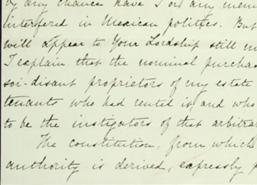 by any chance have I or any mem
interfered in Mexican politics. But
will appear to Your Lordship still m
I explain that the nominal purchas
soi-disant proprietors of my estate
tenants who had rented it and who
to be the instigators of that arbitrar
The constitution, from which
authority is derived, expressly p